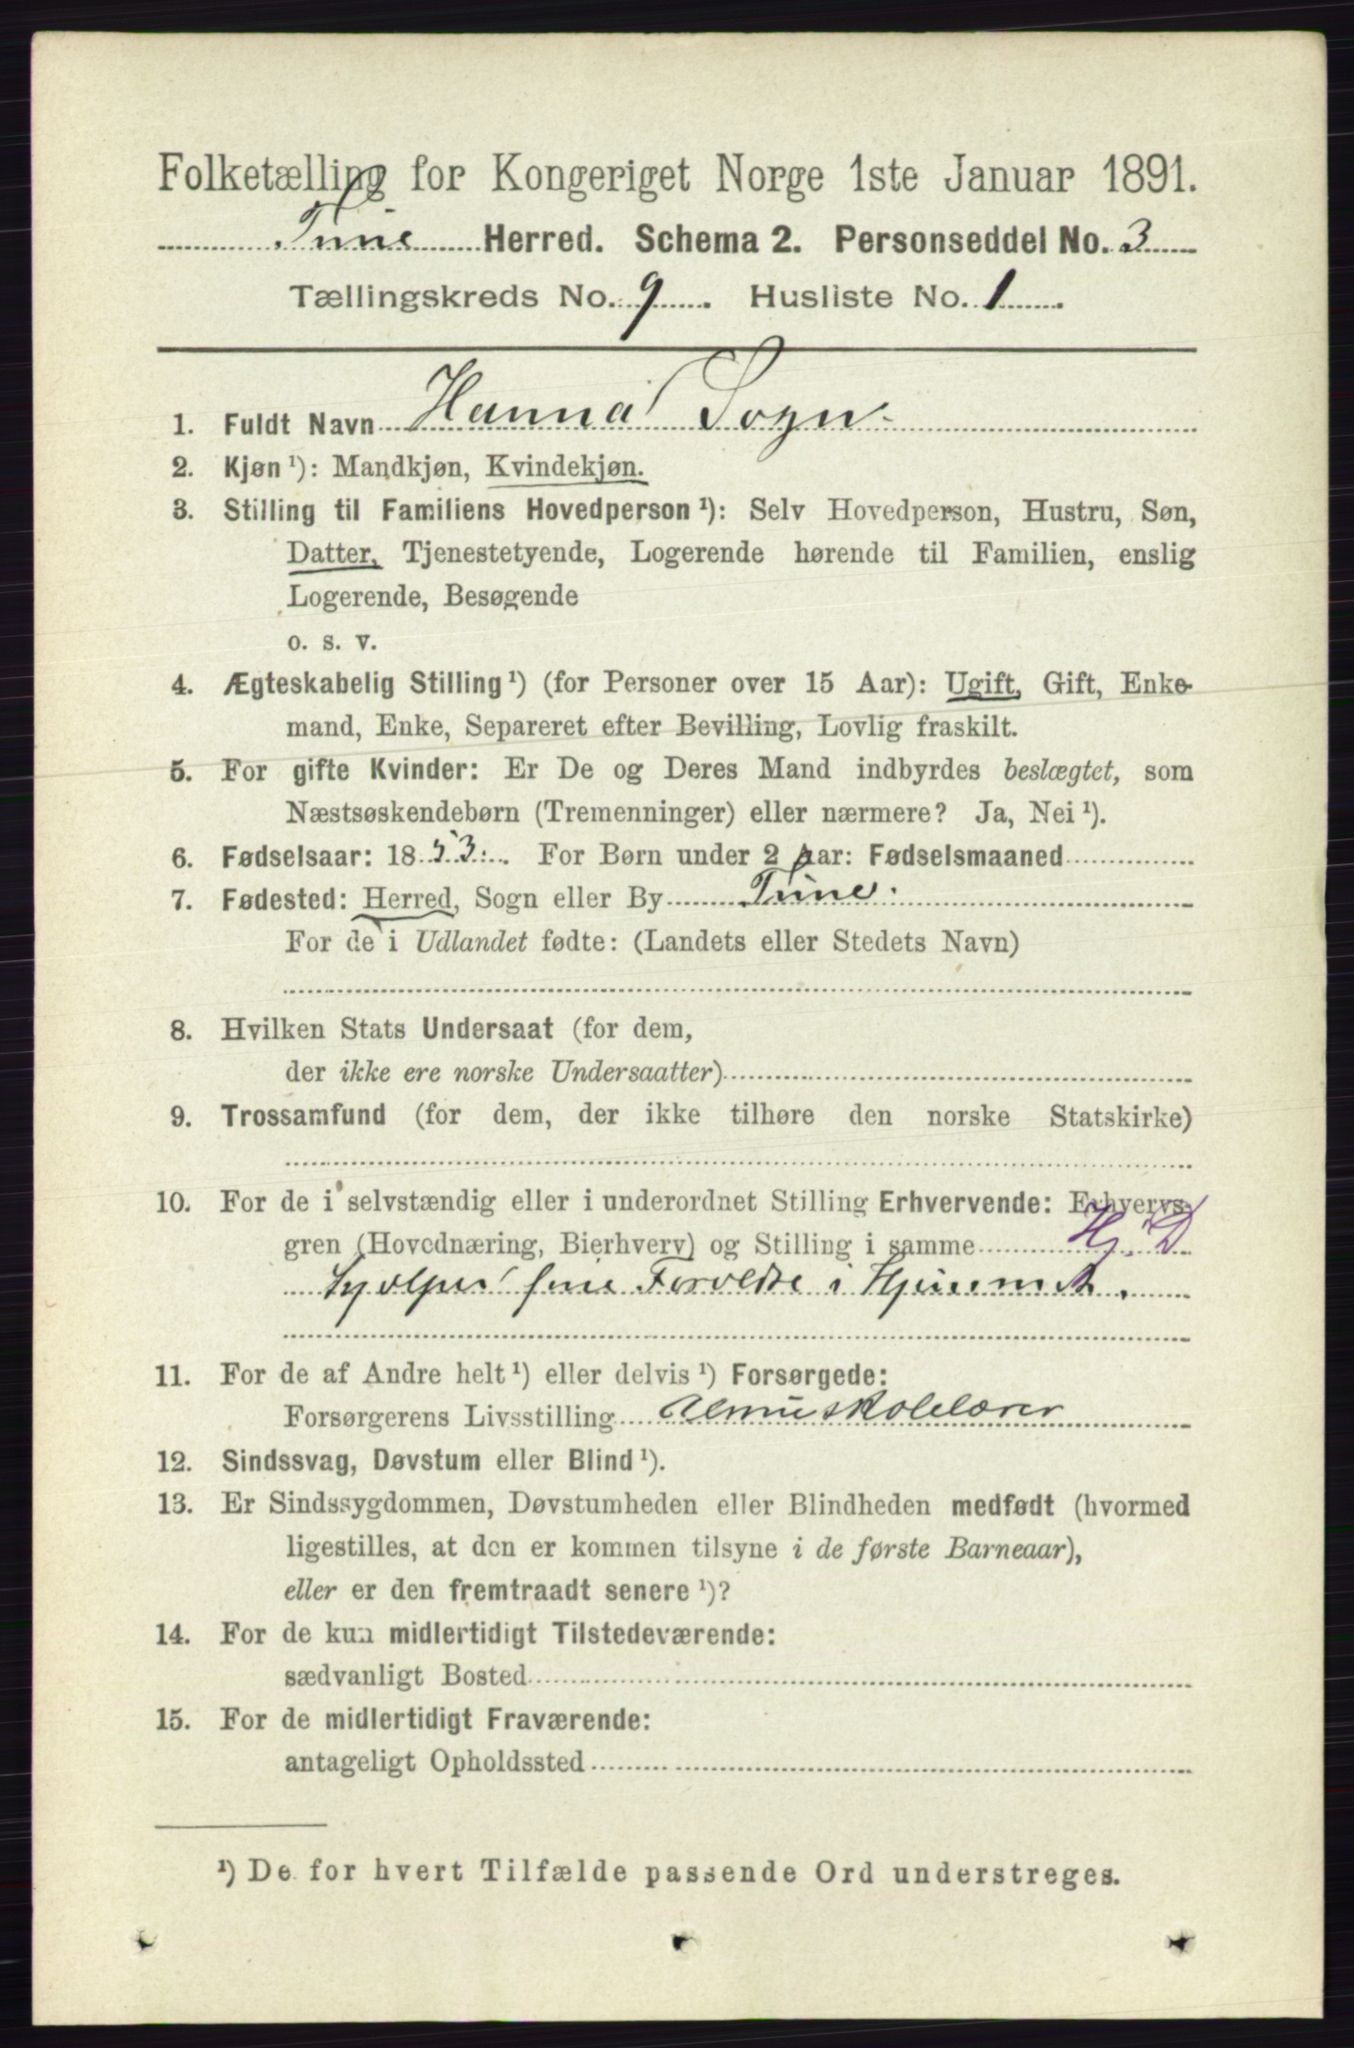 Folketælling for Kongeriget Norge 1ste Januar 1891.
Tune Herred. Schema 2. Personseddel No. 3
Tællingskreds No. 9. Husliste No. 1.
1. Fuldt Navn Hanna Sogn.
2. Kjøn ¹): Mandkjøn, Kvindekjøn.
3. Stilling til Familiens Hovedperson ¹): Selv Hovedperson, Hustru, Søn,
Datter, Tjenestetyende, Logerende hørende til Familien, enslig
Logerende, Besøgende
o. s. v.
4. Ægteskabelig Stilling ¹) (for Personer over 15 Aar): Ugift, Gift, Enke-
mand, Enke, Separeret efter Bevilling, Lovlig fraskilt.
5. For gifte Kvinder: Er De og Deres Mand indbyrdes beslægtet, som
Næstsøskendebørn (Tremenninger) eller nærmere? Ja, Nei ¹).
6. Fødselsaar: 1853. For Børn under 2 Aar: Fødselsmaaned
7. Fødested: Herred, Sogn eller By Tune.
For de i Udlandet fødte: (Landets eller Stedets Navn)
8. Hvilken Stats Undersaat (for dem,
der ikke ere norske Undersaatter)
9. Trossamfund (for dem, der ikke tilhøre den norske Statskirke)
10. For de i selvstændig eller i underordnet Stilling Erhvervende: Erhvervs-
gren (Hovednæring, Bierhverv) og Stilling i samme Hj. D
hjælper sine Forældre i Hjemmet.
11. For de af Andre helt ¹) eller delvis ¹) Forsørgede:
Forsørgerens Livsstilling Almuskolelærer
12. Sindssvag, Døvstum eller Blind ¹).
13. Er Sindssygdommen, Døvstumheden eller Blindheden medfødt (hvormed
ligestilles, at den er kommen tilsyne i de første Barneaar),
eller er den fremtraadt senere ¹)?
14. For de kun midlertidigt Tilstedeværende:
sædvanligt Bosted
15. For de midlertidigt Fraværende:
antageligt Opholdssted
¹) De for hvert Tilfælde passende Ord understreges.